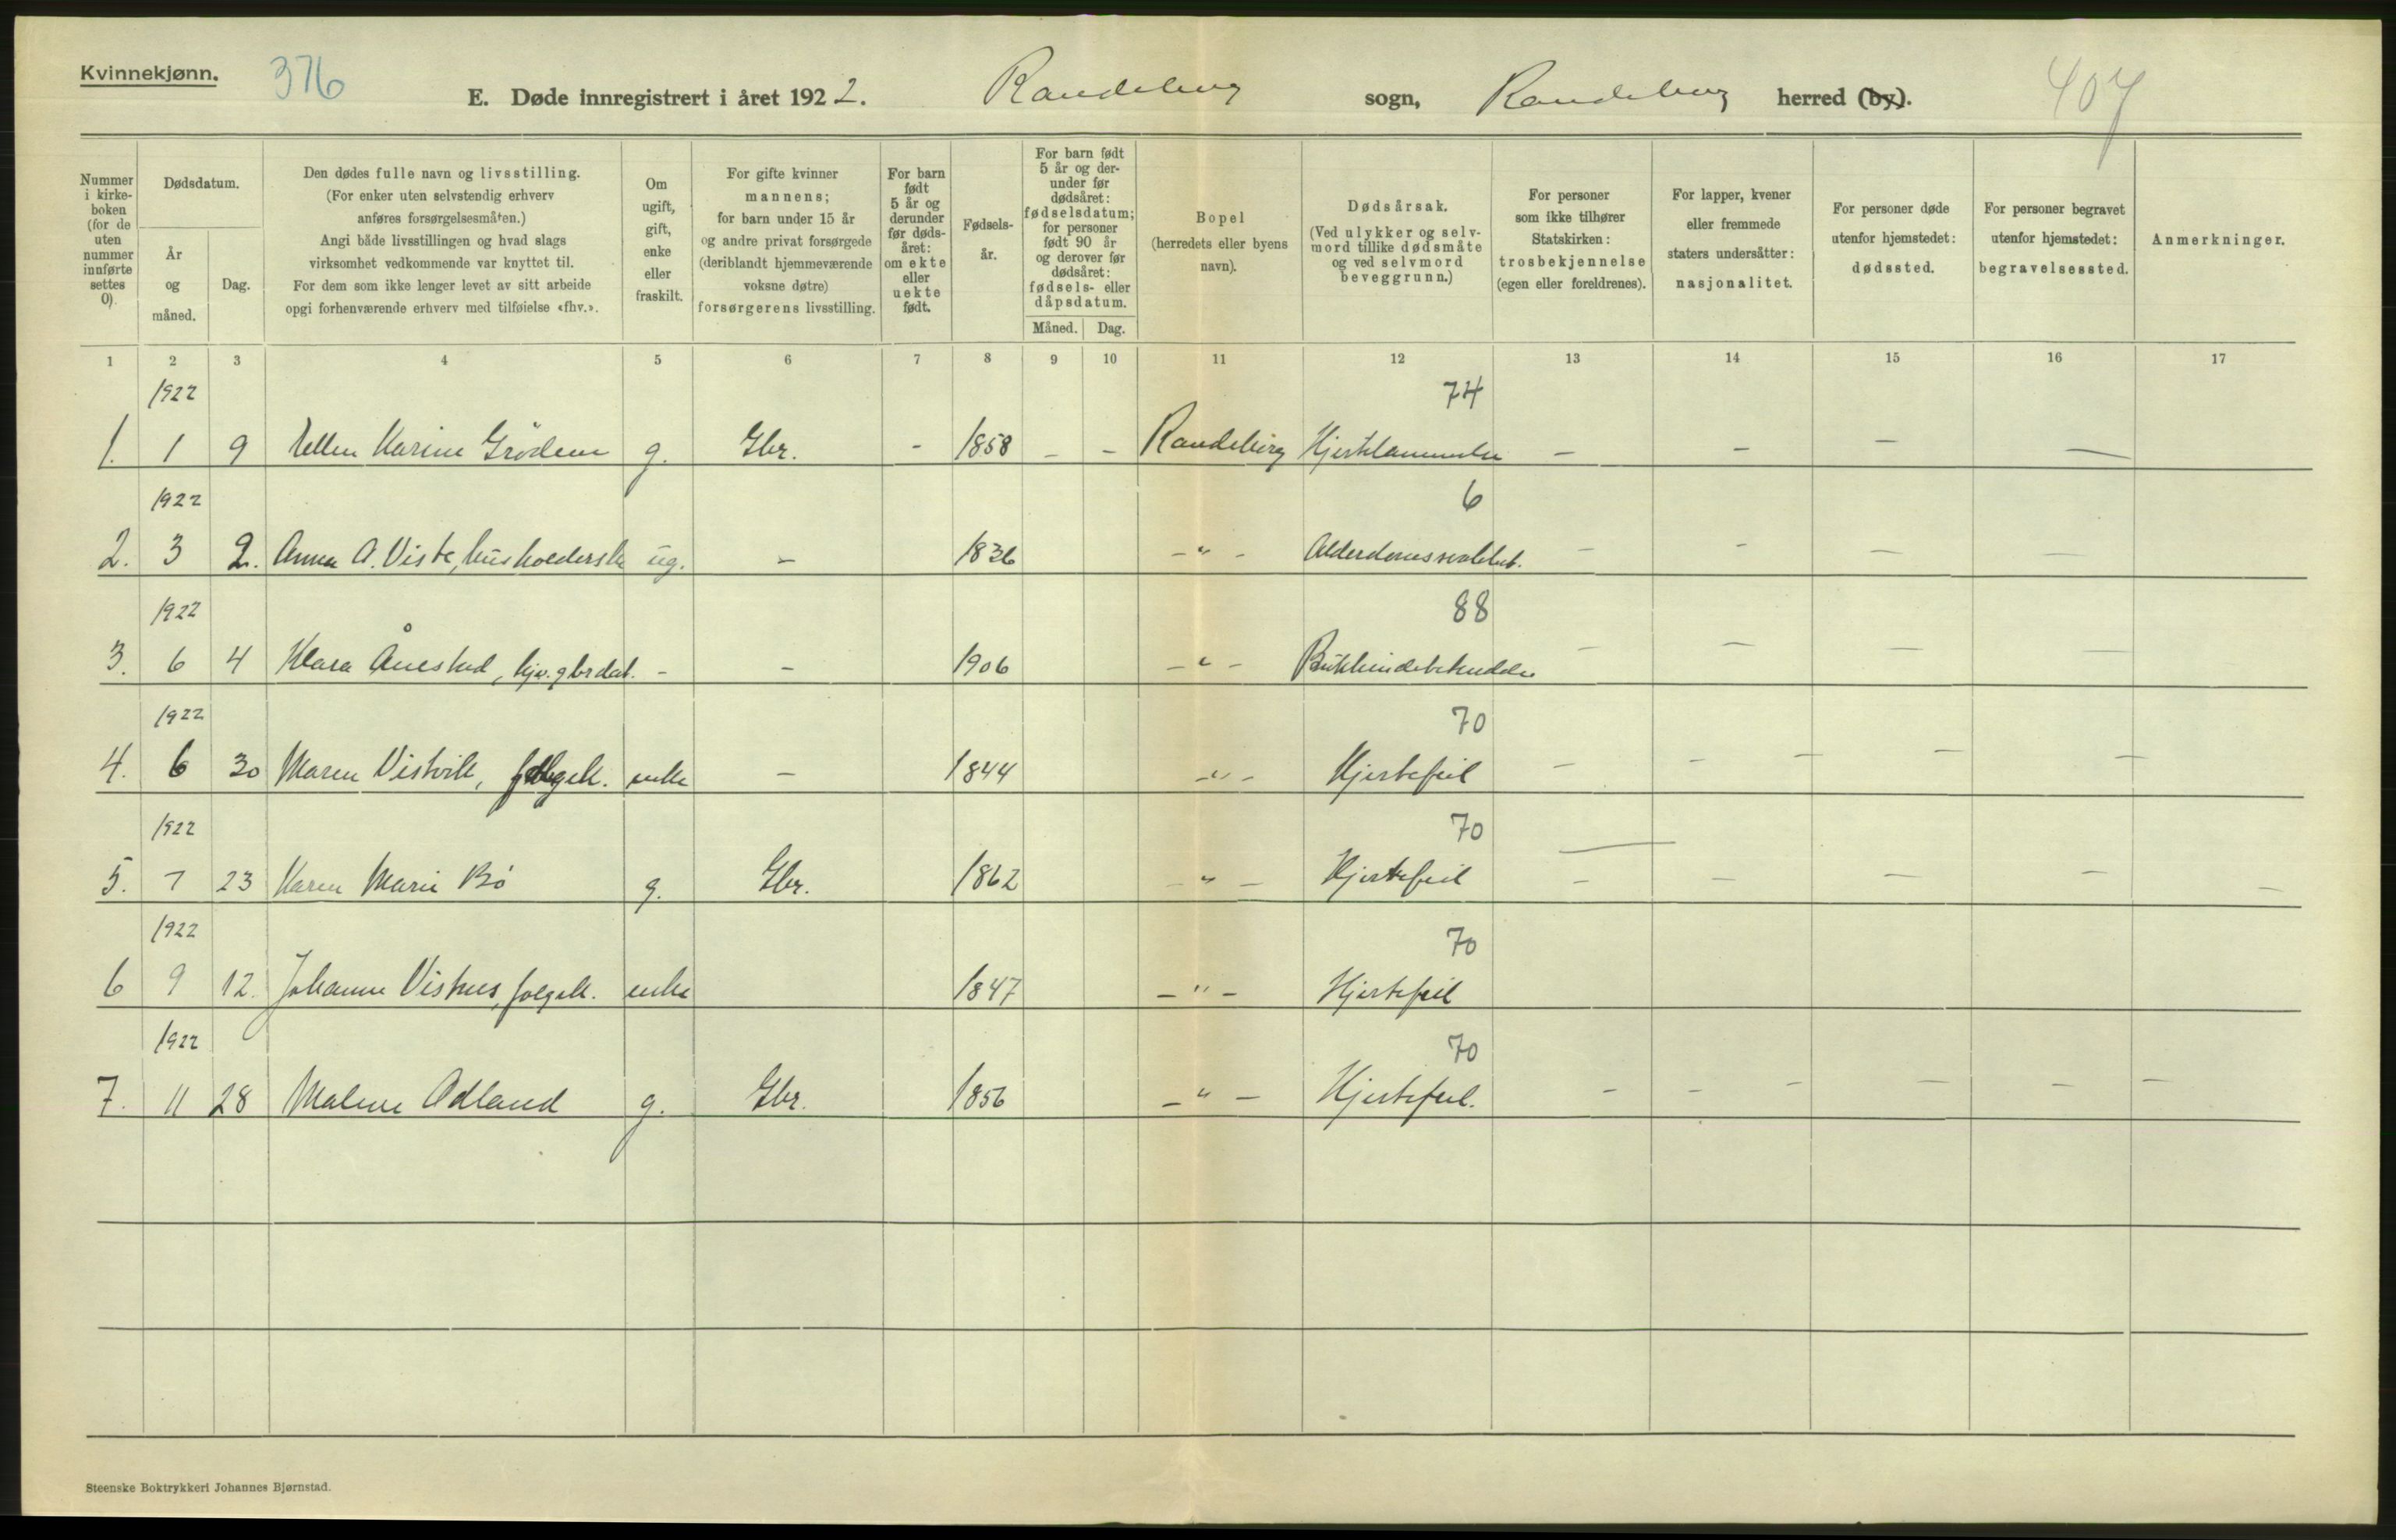 Kvinnekjønn.
376
E. Døde innregistrert i året 1922. Randeberg sogn, Randeberg herred (by).
407
Nummer i kirkeboken (for de uten nummer innførte settes 0).
Dødsdatum.
År og måned.
Dag.
Den dødes fulle navn og livsstilling.
(For enker uten selvstendig erhverv anføres forsørgelsesmåten.)
Angi både livsstillingen og hvad slags virksomhet vedkommende var knyttet til.
For dem som ikke lenger levet av sitt arbeide opgi forhenværende erhverv med tilføielse «fhv.».
Om ugift, gift, enke eller fraskilt.
For gifte kvinner mannens; for barn under 15 år og andre privat forsørgede (deriblandt hjemmeværende voksne døtre) forsørgerens livsstilling.
For barn født 5 år og derunder før dødsåret: om ekte eller uekte født.
Fødselsår.
For barn født 5 år og derunder før dødsåret: fødselsdatum; for personer født 90 år og derover før dødsåret: fødsels- eller dåpsdatum.
Måned. Dag.
Bopel (herredets eller byens navn).
Dødsårsak.
(Ved ulykker og selvmord tillike dødsmåte og ved selvmord beveggrunn.)
For personer som ikke tilhører Statskirken: trosbekjennelse (egen eller foreldrenes).
For lapper, kvener eller fremmede staters undersåtter: nasjonalitet.
For personer døde utenfor hjemstedet: dødssted.
For personer begravet utenfor hjemstedet: begravelsessted.
Anmerkninger.
1 2 3 4 5 6 7 8 9 10 11 12 13 14 15 16 17
1922 74
1. 1 9 Ellen Karine Grödem g. Gbr. - 1858 - - Randeberg Hjertelammelse - - - -
1922 6
2. 3 2. Anna A. Viste, husholderske ug. - 1836 - " - Alderdomssvakhet. - - - -
1922 88
3. 6 4 Klara Ånestad, hjv. gbrdat. - - 1906 - " - Bukhindebetendelse - - - -
1922 70
4. 6 30 Maren Vistvik, følgek. enke - 1844 - " - Hjertefeil - - - - -
1922 70
5. 7 23 Karen Marie Bö g. Gbr. 1862 - " - Hjertefeil - - - - -
1922 70
6 9 12. Johanne Vistnes, følgek. enke 1847 - " - Hjertefeil
1922 70
7. 11 28 Malene Odland g. Gbr. 1856 - " - Hjertefeil. - - - - - -
Steenske Boktrykkeri Johannes Bjørnstad.